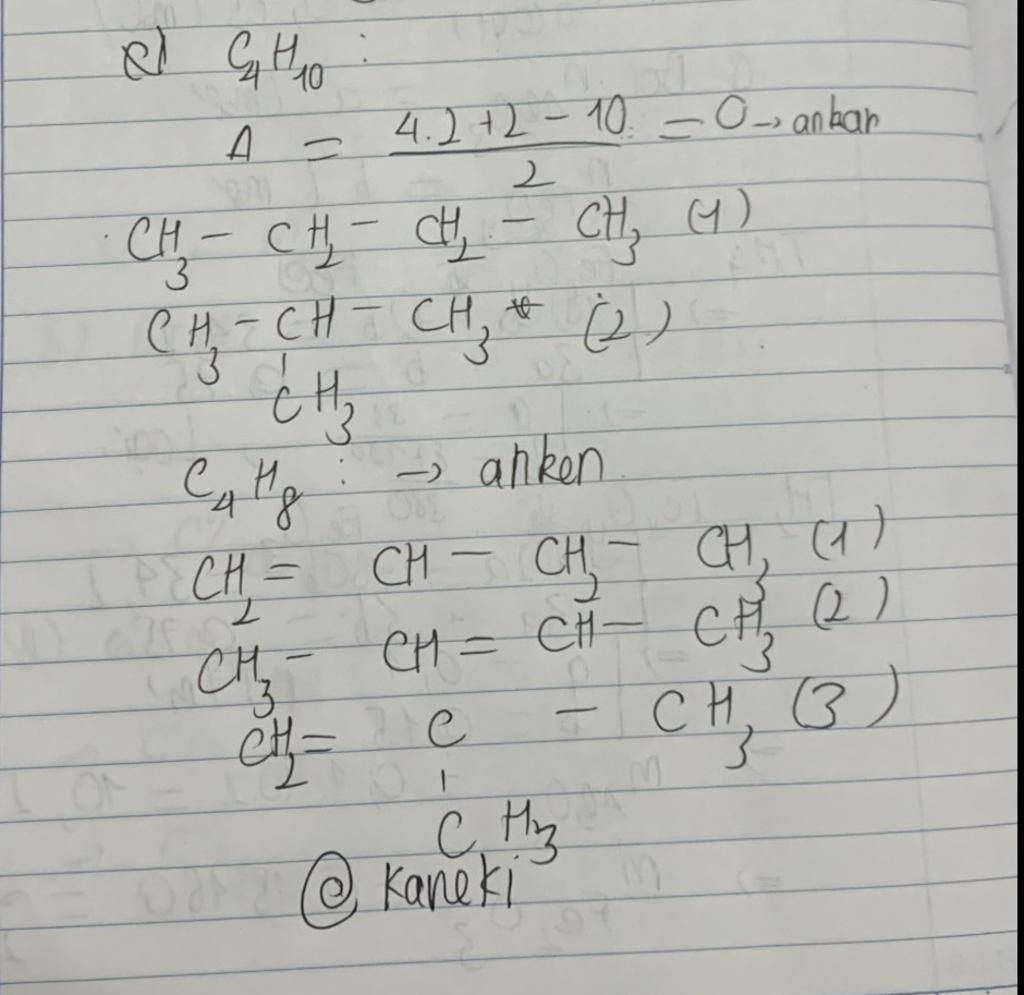 c) C₄H₁₀ :
A = (4.2+2-10)/2 = 0 → ankan
CH₃ - CH₂ - CH₂ - CH₃ (1)
CH₃ - CH - CH₃ (2)
CH₃
C₄H₈ : → anken
CH₂ = CH - CH₂ - CH₃ (1)
CH₃ - CH = CH - CH₃ (2)
CH₂ = C - CH₃ (3)
CH₃
@ Kaneki